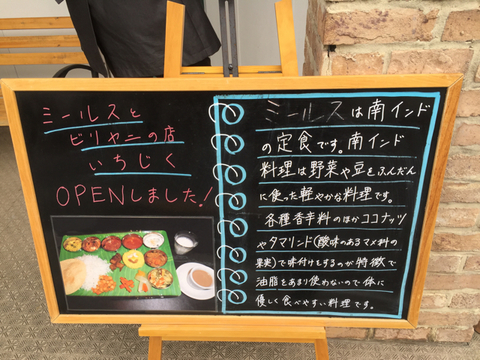 ミールスと
ビリヤニの店
いちじく
OPENしました!
ミールスは南インド
の定食です。南インド
料理は野菜や豆をふんだん
に使った軽やかな料理です。
各種香辛料のほかココナッツ
やタマリンド(酸味のあるマメ科の
果実)で味付けをするのが特徴で
油脂をあまり使わないので体に
優しく食べやすい料理です。